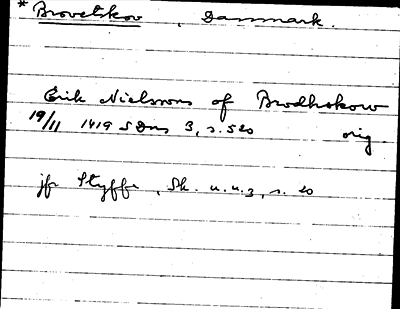 * Brovetskov, Danmark.
Erik Nielssons of Brodhskow
19/11 1419 SDns 3, s. 520 orig
jfr Styffe, Sk. u. u. 3, s. 20